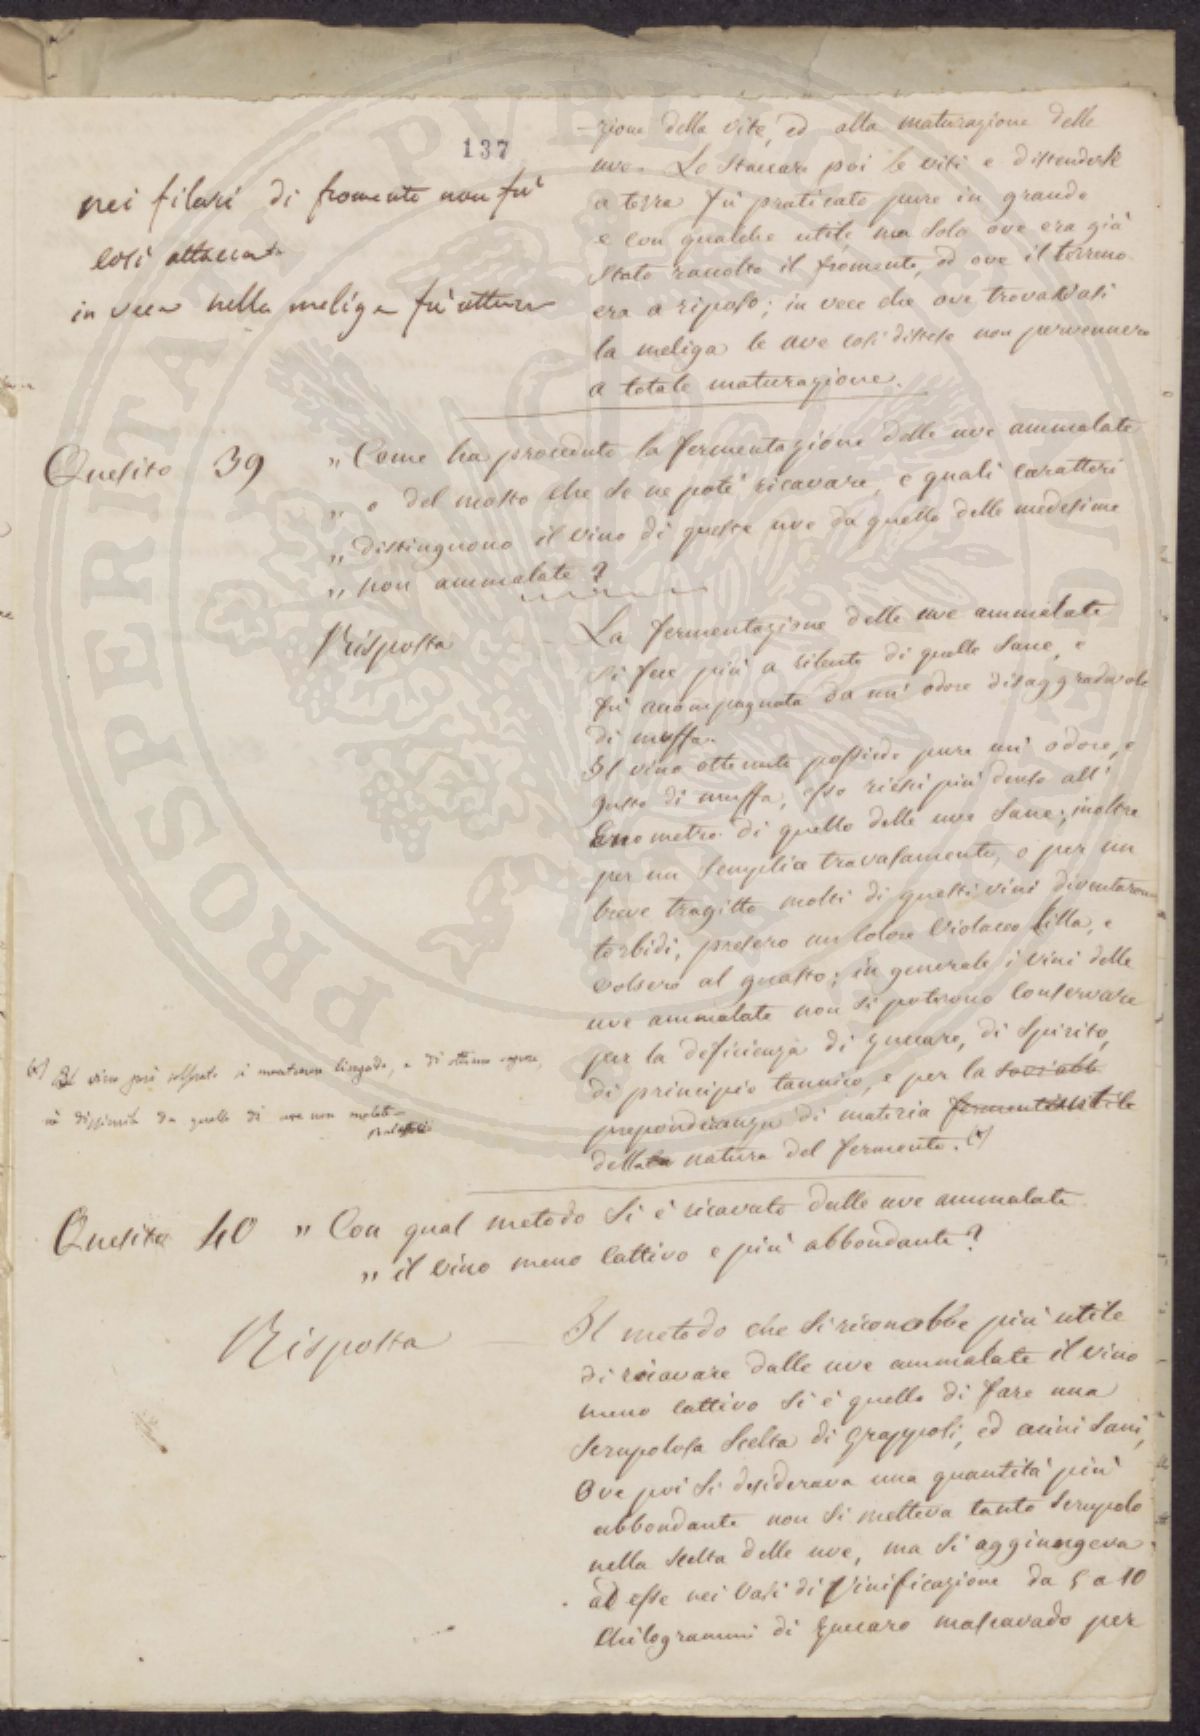 137
nei filari di fromento non fu'
così attaccato
in vece nella meliga fu' attacc
-zione della vite, ed alla maturazione delle
uve. Lo staccare poi le viti e distenderle
a terra fu' praticato pure in grande
e con qualche utile, ma solo ove era già
stato raccolto il fromento, od ove il terreno
era a riposo; in vece che ove trovavasi
la meliga le uve così distese non pervennero
a totale maturazione.
Quesito 39 " Come ha proceduto la fermentazione delle uve ammalate
" o del mosto che se ne potè ricavare, e quali caratteri
" distinguono il vino di queste uve da quello delle medesime
" non ammalate?
Risposta
La fermentazione delle uve ammalate
si fece più a rilento di quelle sane, e
fu' accompagnata da un' odore disaggradevole
di muffa.
Il vino ottenuto possiede pure un' odore, e
gusto di muffa, esso riescì più denso all'
Enometro di quello delle uve sane; inoltre
per un semplice travasamento, o per un
breve tragitto molti di questi vini diventarono
torbidi, presero un colore violaceo lilla, e
volsero al guasto; in generale i vini delle
uve ammalate non si potranno conservare
per la deficienza di zuccaro, di spirito,
di principio tannico, e per la
preponderanza di materia
della natura del fermento. (*)
(*) Il vino però solforato si mantenne limpido, e di ottimo sapore,
nè dissimile da quello di uve non malate
Quesito 40 " Con qual metodo si è ricavato dalle uve ammalate
" il vino meno cattivo e più abbondante?
Risposta
Il metodo che si riconobbe più utile
di ricavare dalle uve ammalate il vino
meno cattivo si è quello di fare una
scrupolosa scelta di grappoli, ed acini sani,
Ove poi si desiderava una quantità più
abbondante non si metteva tanto scrupolo
nella scelta delle uve, ma si aggiungeva
ad esse nei vasi di vinificazione da 5 a 10
Chilogrammi di zuccaro mascavado per